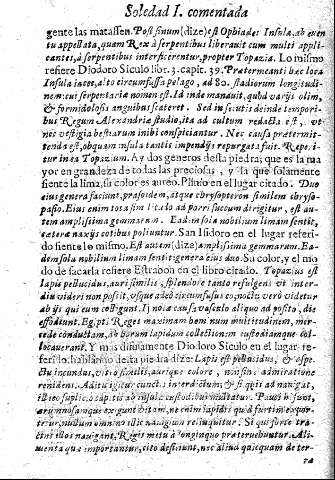 Soledad I. comentada
gente las matassen. Post sinum (dize) est Ophiades Insula, ab euen
tu appellata, quam Rex à serpentibus liberauit cum multi appli-
cantes, à serpentibus interficerentur, propter Topazia. Lo mismo
refiere Diodoro Siculo libr. 3. capit. 39. Prætermeanti hæc loca
Insula iacet, alto circumfussa pelago, ad 80. stadiorum longitudi-
nem: cui serpentariæ nomen est. Id inde manauit, quòd varijs olim,
& formidolosis anguibus scateret. Sed insecutis deinde tempori-
bus Regum Alexandriæ studio, ita ad cultum redacta est, vt
nec vestigia bestiarum inibi conspiciantur. Nec causa prætermit-
tenda est, ob quam insula tanti impendijs repurgata fuit. Reperi-
tur in ea Topazium. Ay dos generos desta piedra; que es la ma
yor en grandeza de todas las preciosas, y la que solamente
siente la lima, su color es aureo. Plinio en el lugar citado. Duo
eius genera faciunt, prasoidem, atque chrysopteron similem chryso-
pasio. Eius enim tota similitudo ad porri succum dirigitur, est au-
tem amplissima gemmarum. Eadem sola nobilium limam sentit,
cæteræ naxijs cotibus poliuntur. San Isidoro en el lugar referi-
do siente lo mismo. Est autem (dize) amplissima gemmarum. Ea-
dem sola nobilium limam sentit: genera eius duo. Su color, y el mo
do de sacarla refiere Estrabon en el libro citado. Topazius est
lapis pellucidus, auri similis, splendore tanto refulgens vt inter-
diu videri non possit, vsque adeò circumfusus eo, noctu verò videtur
ab ijs qui eum colligunt. Ij noctu vasculo aliquo ad posito, die
effodiunt. Egypti Reges maximam hominum multitudinem, mer-
cede conductam, ad horum lapidum collectionem custodiamque col-
locauerant. Y mas difusamente Diodoro Siculo en el lugar re-
ferido, hablando desta piedra dize: Lapis est pellucidus, & aspe-
ctu iucundus, vitro similis, aurique colore, nonsine admiratione
renidens. Aditu igitur cunctis interdictum; & si quis ad nauigat,
illico supplicio capitis ab insulæ custodibus mulctatur. Pauci hi sunt,
ærumnosamque exigunt vitam, ne enim lapidis quid furtim expor-
tetur, nullum omnino illic nauigium relinquitur. Si qui forte tra-
ctu illos nauigant, Regis metu è longinquo præteruehuntur. Ali-
menta quæ importantur, citò desinunt, nec aliud quicquam de ter-
ra